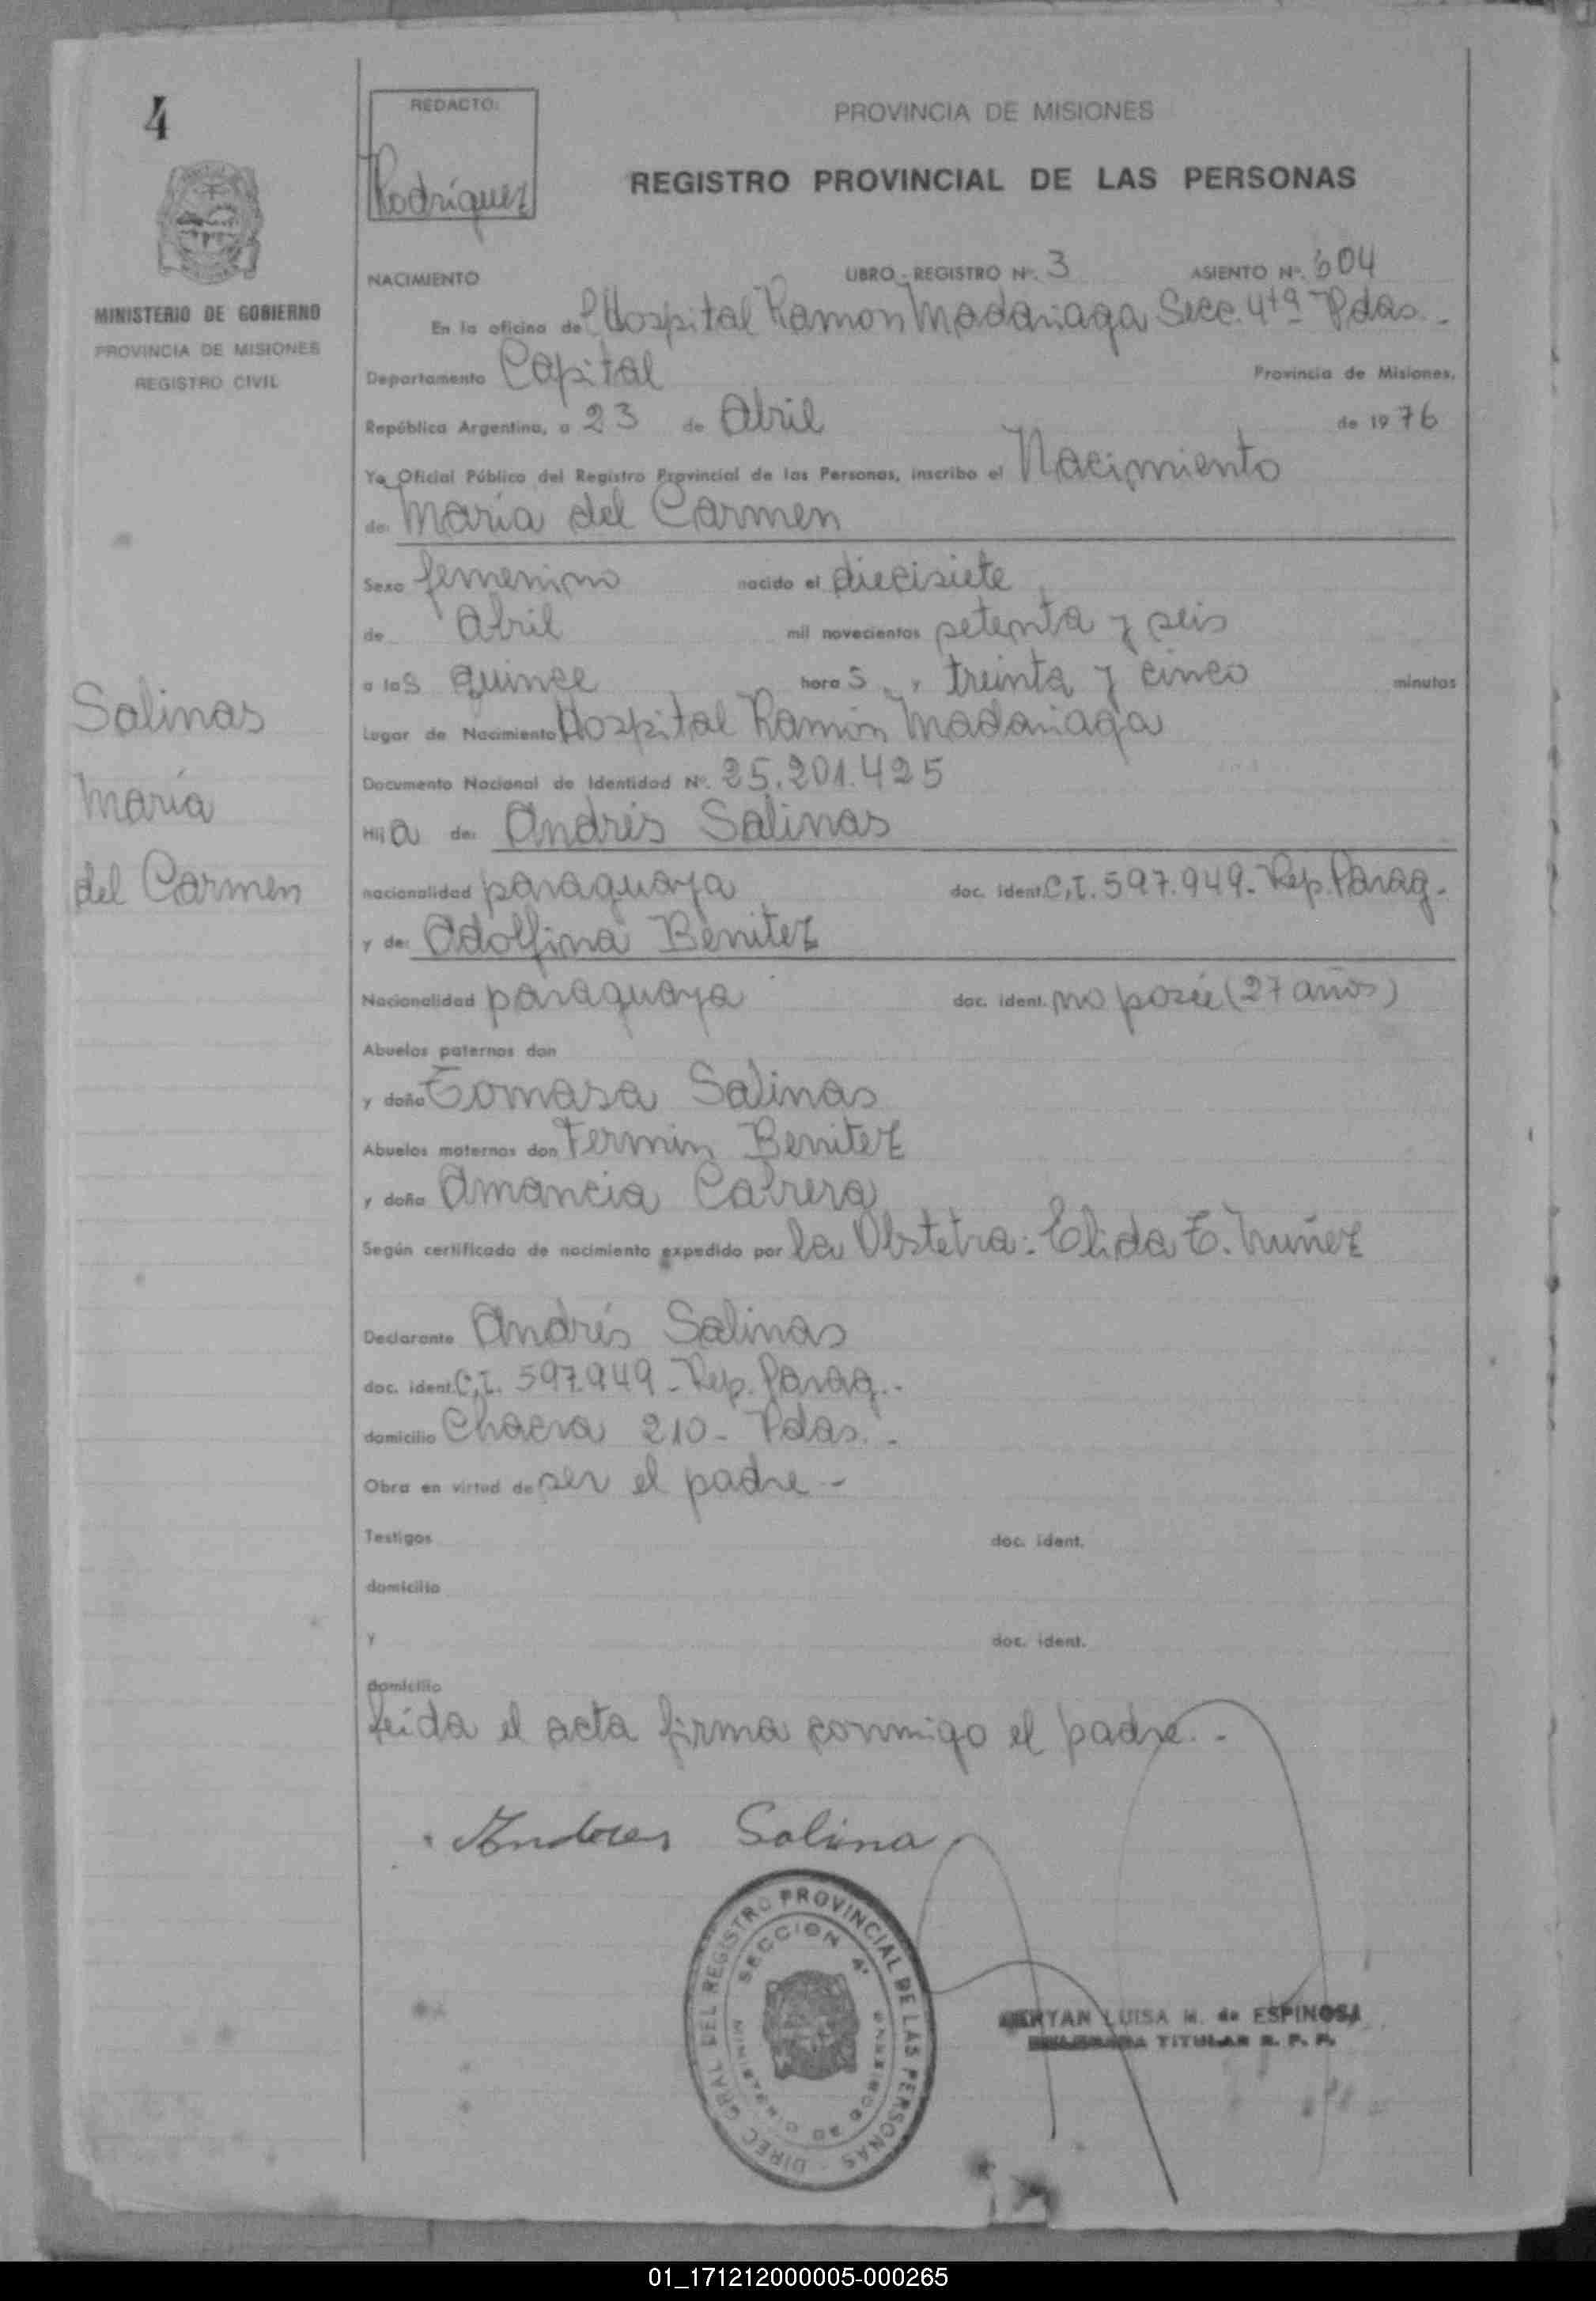 4
REDACTO:
Rodríguez
PROVINCIA DE MISIONES
REGISTRO PROVINCIAL DE LAS PERSONAS
MINISTERIO DE GOBIERNO
PROVINCIA DE MISIONES
REGISTRO CIVIL
NACIMIENTO LIBRO - REGISTRO Nº. 3 ASIENTO Nº. 604
En la oficina del Hospital Ramon Madariaga Secc. 4ta Pdas. -
Departamento Capital Provincia de Misiones,
República Argentina, a 23 de Abril de 1976
Yo Oficial Público del Registro Provincial de las Personas, inscribo el Nacimiento
de: María del Carmen
Sexo femenino nacido el diecisiete
de Abril mil novecientos setenta y seis
a las quince horas, treinta y cinco minutos
Lugar de Nacimiento Hospital Ramón Madariaga
Documento Nacional de Identidad Nº. 25.201.425
Hija de: Andrés Salinas
nacionalidad paraguaya doc. ident. C.I. 597.949- Rep. Parag.
y de: Adolfina Benitez
Nacionalidad paraguaya doc. ident. no posée (27 años)
Abuelos paternos don
y doña Tomasa Salinas
Abuelos maternos don Fermin Benitez
y doña Amancia Cabrera
Según certificado de nacimiento expedido por la Obstetra: Elida E. Nuñez
Declarante Andrés Salinas
doc. ident. C.I. 597.949 - Rep. Parag. -
domicilio Chacra 210 - Pdas. -
Obra en virtud de ser el padre -
Testigos doc. ident.
domicilio
y doc. ident.
domicilio
Leída el acta firma conmigo el padre. -
Salinas
María
del Carmen
Andres Salina
DIREC. GRAL. DEL REGISTRO PROVINCIAL DE LAS PERSONAS -
SECCION 4ª
MINISTERIO DE GOBIERNO
LUISA M. de ESPINOSA
TITULAR R. P. P.
01_171212000005-000265